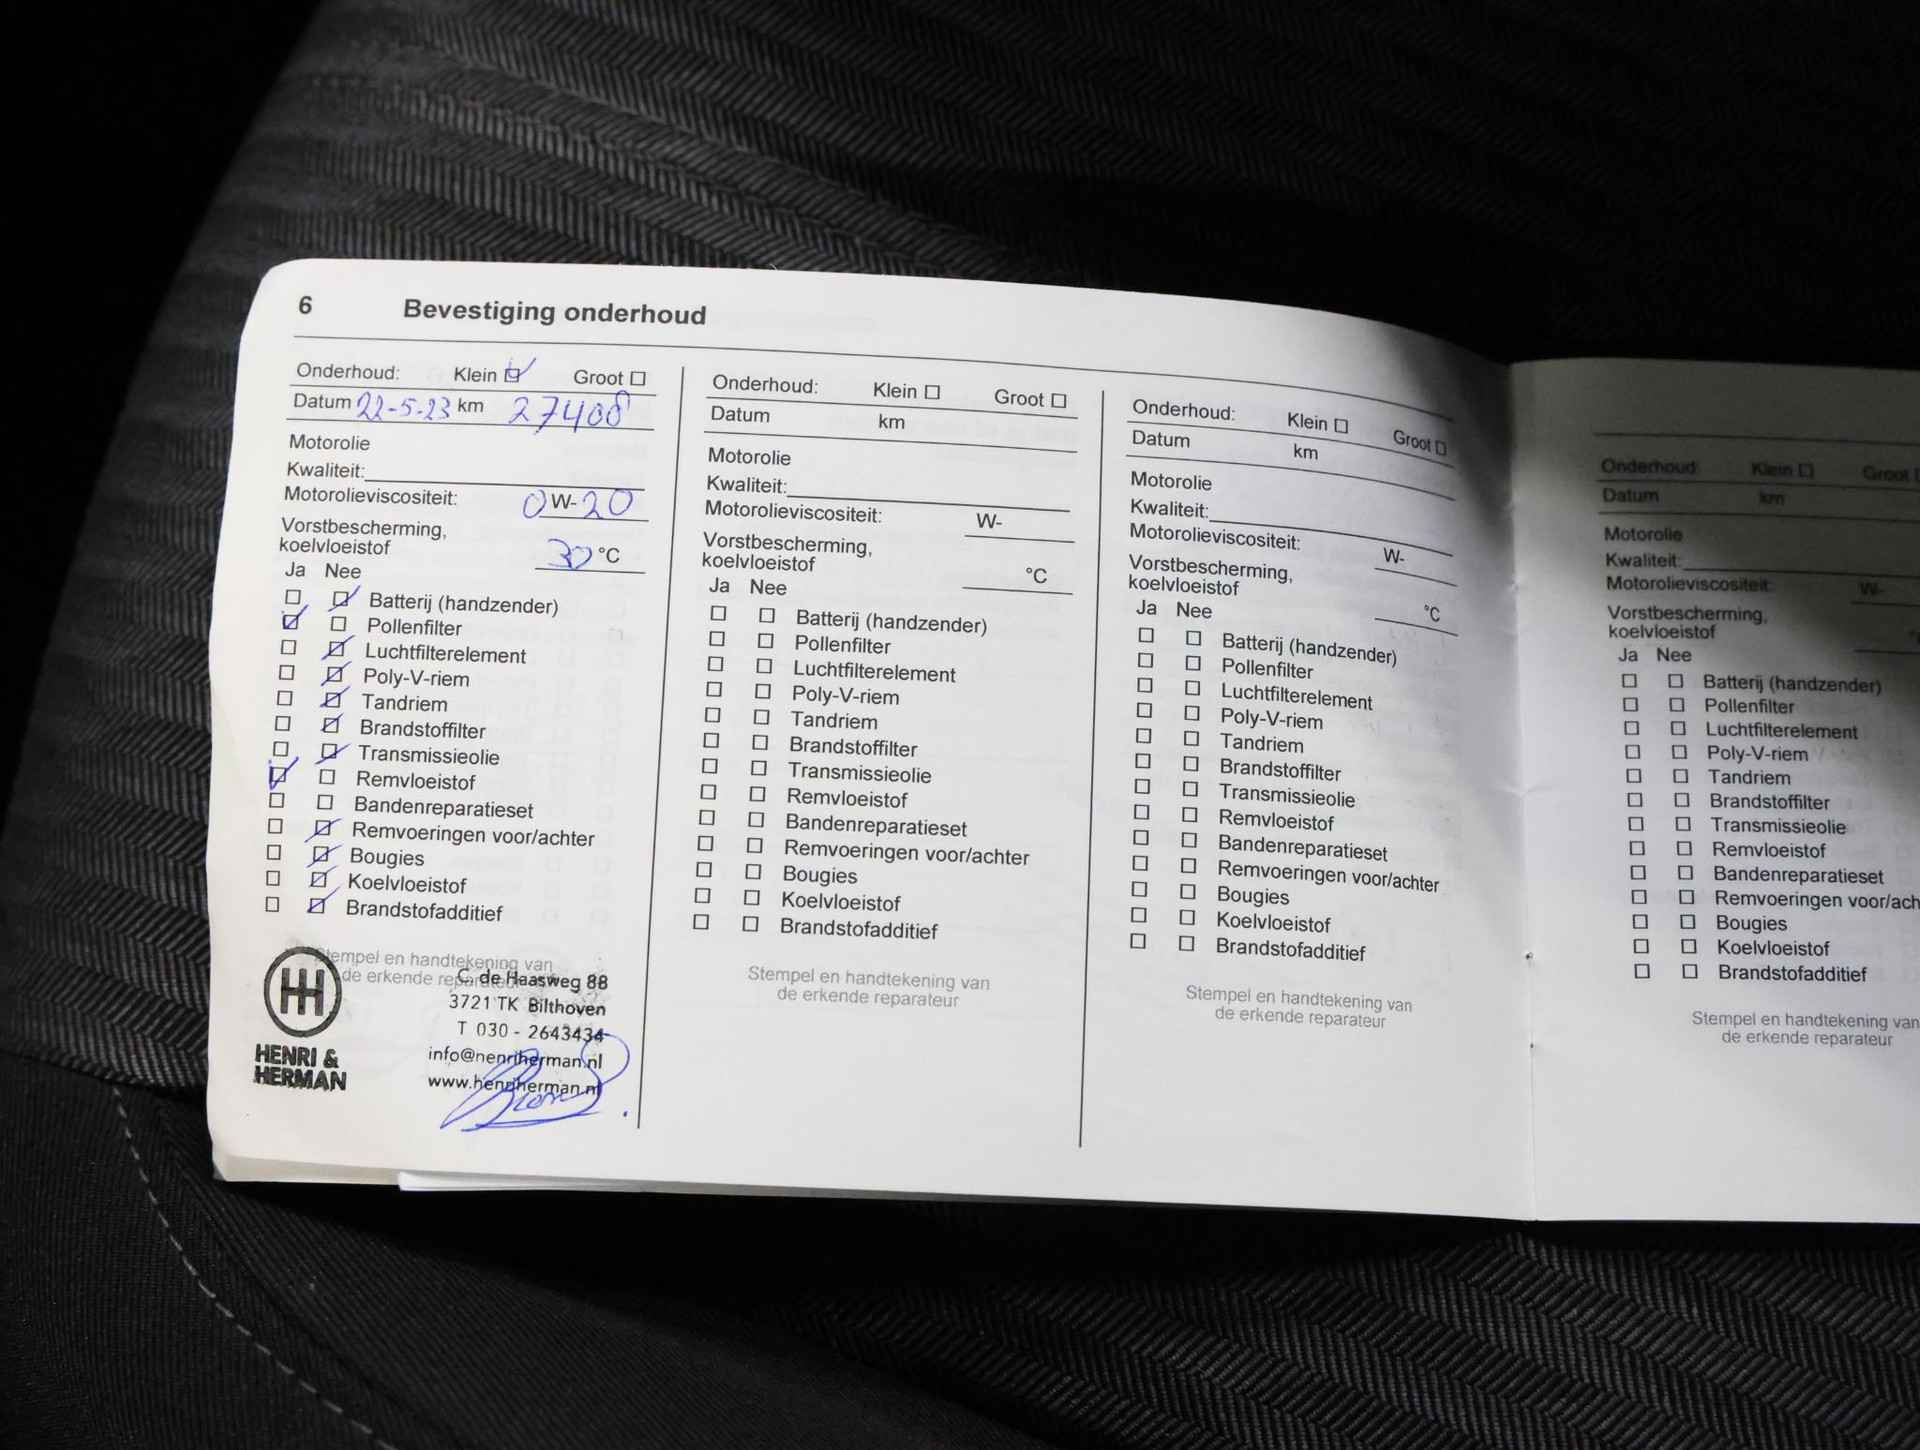 6 Bevestiging onderhoud
Onderhoud: Klein Groot
Datum 22-5-23 km 27408
Motorolie
Kwaliteit:
Motorolieviscositeit: 0 W-20
Vorstbescherming,
koelvloeistof 30 °C
Ja Nee
Batterij (handzender)
Pollenfilter
Luchtfilterelement
Poly-V-riem
Tandriem
Brandstoffilter
Transmissieolie
Remvloeistof
Bandenreparatieset
Remvoeringen voor/achter
Bougies
Koelvloeistof
Brandstofadditief
Stempel en handtekening van
de erkende reparateur
HENRI &
HERMAN
C. de Haasweg 88
3721 TK Bilthoven
T 030 - 2643434
info@henriherman.nl
www.henriherman.nl
Onderhoud: Klein Groot
Datum km
Motorolie
Kwaliteit:
Motorolieviscositeit: W-
Vorstbescherming,
koelvloeistof °C
Ja Nee
Batterij (handzender)
Pollenfilter
Luchtfilterelement
Poly-V-riem
Tandriem
Brandstoffilter
Transmissieolie
Remvloeistof
Bandenreparatieset
Remvoeringen voor/achter
Bougies
Koelvloeistof
Brandstofadditief
Stempel en handtekening van
de erkende reparateur
Onderhoud: Klein Groot
Datum km
Motorolie
Kwaliteit:
Motorolieviscositeit: W-
Vorstbescherming,
koelvloeistof °C
Ja Nee
Batterij (handzender)
Pollenfilter
Luchtfilterelement
Poly-V-riem
Tandriem
Brandstoffilter
Transmissieolie
Remvloeistof
Bandenreparatieset
Remvoeringen voor/achter
Bougies
Koelvloeistof
Brandstofadditief
Stempel en handtekening van
de erkende reparateur
Onderhoud: Klein Groot
Datum km
Motorolie
Kwaliteit:
Motorolieviscositeit: W-
Vorstbescherming,
koelvloeistof
Ja Nee
Batterij (handzender)
Pollenfilter
Luchtfilterelement
Poly-V-riem
Tandriem
Brandstoffilter
Transmissieolie
Remvloeistof
Bandenreparatieset
Remvoeringen voor/ach
Bougies
Koelvloeistof
Brandstofadditief
Stempel en handtekening van
de erkende reparateur